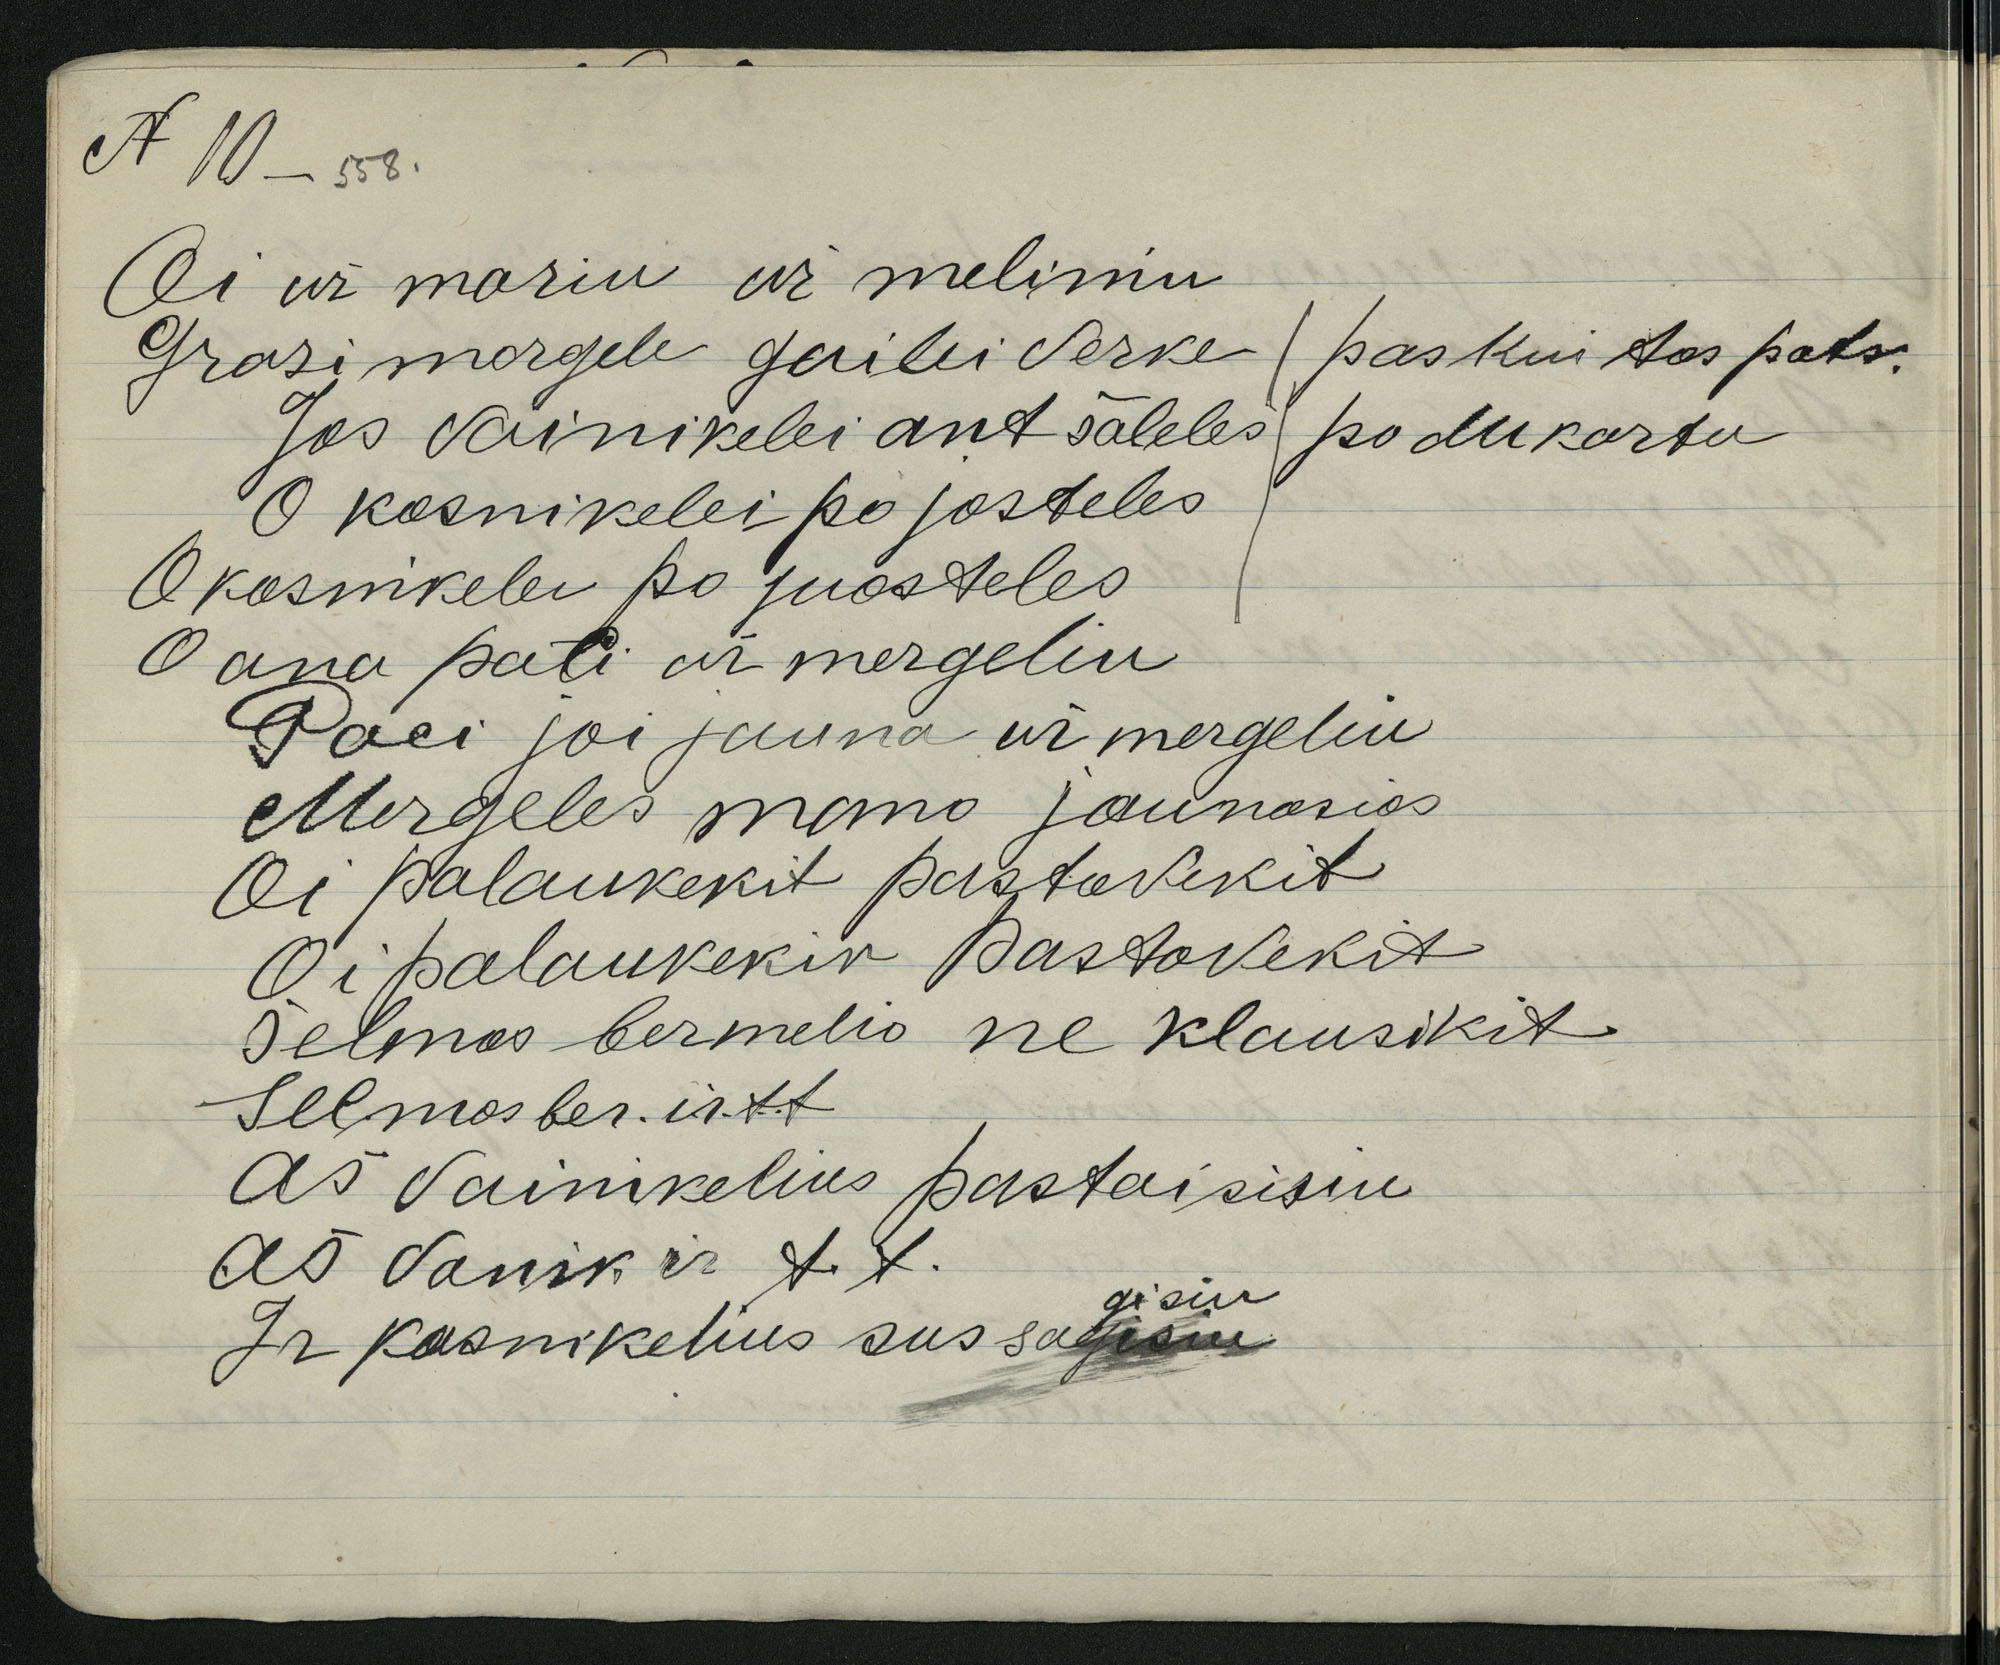 N 10 – 558.
Oi už mariu už meliniu
Graži mergele gailei verke / paskui tas pats.
Jos vainikelei ant šaleles / po du kartu
O kasnikelei po josteles
O kasnikelei po juosteles
O ana pati už mergeliu
Paci joi jauna už mergeliu
Mergeles mano jaunosios
Oi palaukekit pastovekit
Oi palaukekit pastovekit
Šelmos bernelio ne klausikit
Selmos ber. ir t.t
Aš vainikelius pastaisisiu
Aš vanik ir t. t.
gisiu
Ir kasnikelius sussagisiu